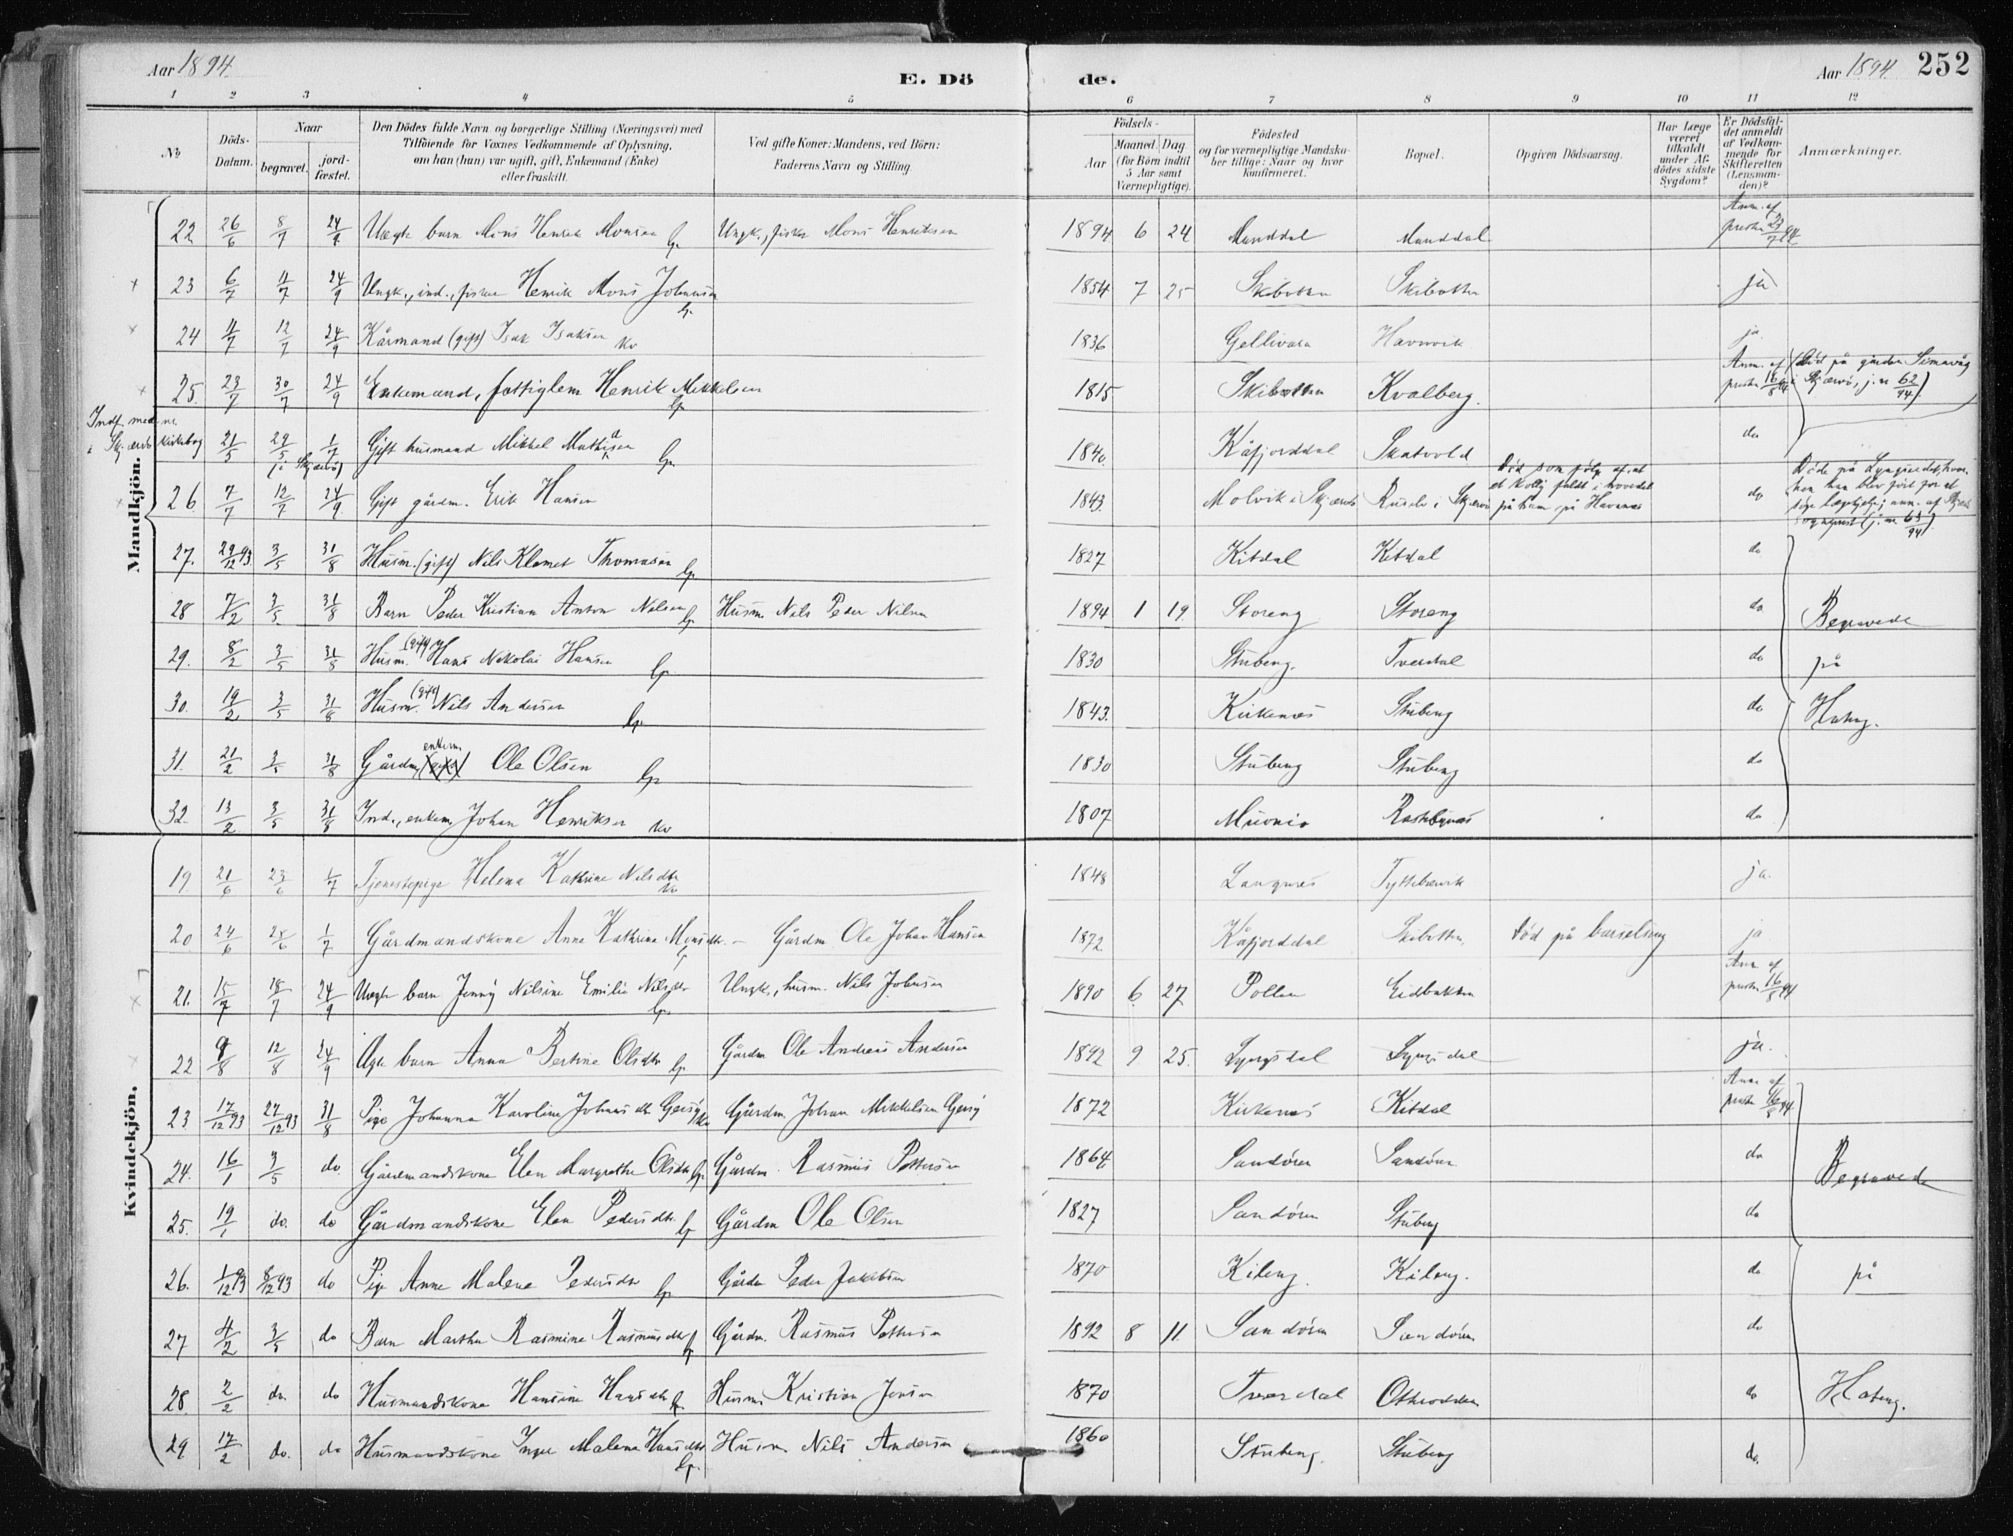 Aar 1894.
E. Dö de.
Aar 1894. 252
1 2 3 4 5 6 7 8 9 10 11 12
No
Döds-Datum.
Naar
begravet.
jord-fæstet.
Den Dödes fulde Navn og borgerlige Stilling (Næringsvei) med
Tilföiende for Voxnes Vedkommende af Oplysning,
om han (hun) var ugift, gift, Enkemand (Enke)
eller fraskilt.
Ved gifte Koner: Mandens, ved Börn:
Faderens Navn og Stilling.
Födsels-
Aar
Maaned. Dag
(for Börn indtil
5 Aar samt
Værnepligtige).
Födested
og for værnepligtige Mandska-
ber tillige: Naar og hvor
Konfirmeret.
Bopæl.
Opgiven Dödsaarsag.
Har Læge
været
tilkaldt
under Af-
dödes sidste
Sygdom?
Er Dödsfal-
det anmeldt
af Vedkom-
mende for
Skifteretten
(Lensman-
den)?
Anmærkninger.
Mandkjön.
22 26/6 8/7 24/9 Uægte barn Mons Henrik Monsen lp. Ungk., fisker Mons Henriksen 1894 6 24 Manddal Manddal Anm. af presten 23/7 94
23 6/7 11/7 24/9 Ungk., ind., fisker Henrik Mons Johansen lp. 1854 7 25 Skibotten Skibotten ja
24 11/7 12/7 24/9 Kårmand (gift) Isak Isaksen kv 1836 Gellivara Havnvik ja
25. 23/7 30/7 24/9 Enkemand, fattiglem Henrik Mikkelsen lp. 1815 Skibotten Kvalberg. Anm. af presten 16/8 94 (Död på gården Simavåg i Skjærvö, j. nr 62/94).
Indf. med nr. i Skjærvö kirkebog 21/5 29/5 (i Skjærvö) 1/7 Gift husmand Mikkel Mathisen lp. 1840. Kåfjorddal Skatvold do
26. 7/7 12/7 24/9. Gift gårdm. Erik Hansen 1843. Molvik i Skjærvö i Skjærvö Död som fölge af, at et faldt i hovedet på ham på Havnnes do Döde på Lyngseidet, hvor han blev fört for at söge lægehjelp; anm. af sogneprest (j. nr. 63/94).
27. 29/12 93. 3/5 31/8 Husm. (gift) Nils Klemet Thomassen lp. 1827 Kitdal Kitdal do
28 7/2 3/5. 31/8 Barn Peder Kristian Anton Nilsen lp. Husm. Nils Peder Nilsen 1894 1 19. Storeng Storeng do Begravede
29. 8/2 3/5 31/8 Husm. (gift) Hans Nikolai Hansen lp. 1830 Stubeng. Tverdal do på
30. 19/2 3/5 31/8 Husm. (gift) Nils Andersen lp. 1843. Kirkenes Stubeng do Hateng.
31. 21/2 3/5 31/8 Gårdm. (gift) enkem. Ole Olsen lp. 1830 Stubeng Stubeng do
32. 13/2 3/5 31/8 Ind., enkem. Johan Henriksen kv 1807 Muonio do
Kvindekjön.
19. 21/6 23/6 1/7 Tjenestepige Helena Kathrine Nilsdtr. kv 1848 Langnes Tyttebærvik ja.
20 24/6 28/6 1/7 Gårdmandskone Anne Kathrine Monsdtr. lp – Gårdm Ole Johan Hansen 1872 Kåfjorddal Skibotten. död på barselseng ja
21. 15/7 18/7 24/9 Uægte barn Jenny Nilsine Emilie Nilsdtr. lp. Ungk., husm. Nils Johnsen 1890 6 27 Pollen Eidbakken Anm. af presten 16/8 94
22 9/8 12/8 24/9 Ægte barn Anna Bertine Olsdtr lp. Gårdm Ole Andreas Andersen 1892 9 25. Lyngsdal Lyngsdal ja.
23 17/12 93 27/12 93 31/8 Pige Johanna Karoline Johansdtr. Gårdm. Johan Mikkelsen 1872 Kirkenes Kitdal Anm. af presten 16/8 94
24. 16/1 3/5 do Gårdmandskone Elen Margrethe Olsdtr lp. Gårdm. Rasmus Pettersen 1864 Sandören Sandören do Begravede
25. 19/1 do. do Gårdmandskone Elen Pedersdtr. lp Gårdm Ole Olsen 1827 Sandören Stubeng do
26. 1/12 93 8/12 93 do Pige Anne Malene Pedersdtr lp. Gårdm Peder Jakobsen 1870 Kileng. Kileng. do på
27 4/2 3/5 do Barn Martha Rasmine Rasmusdtr lp Gårdm. Rasmus Pettersen 1892 8 11. Sandören Sandören do
28. 2/2 do. do Husmandskone Hansine Hansdtr lp. Husm. Kristian Jensen 1870 Tverdal do Hateng.
29 17/2 do. do Husmandskone Inger Malena Hansdtr. lp. Husm Nils Andersen 1860 Stubeng. Stubeng do.